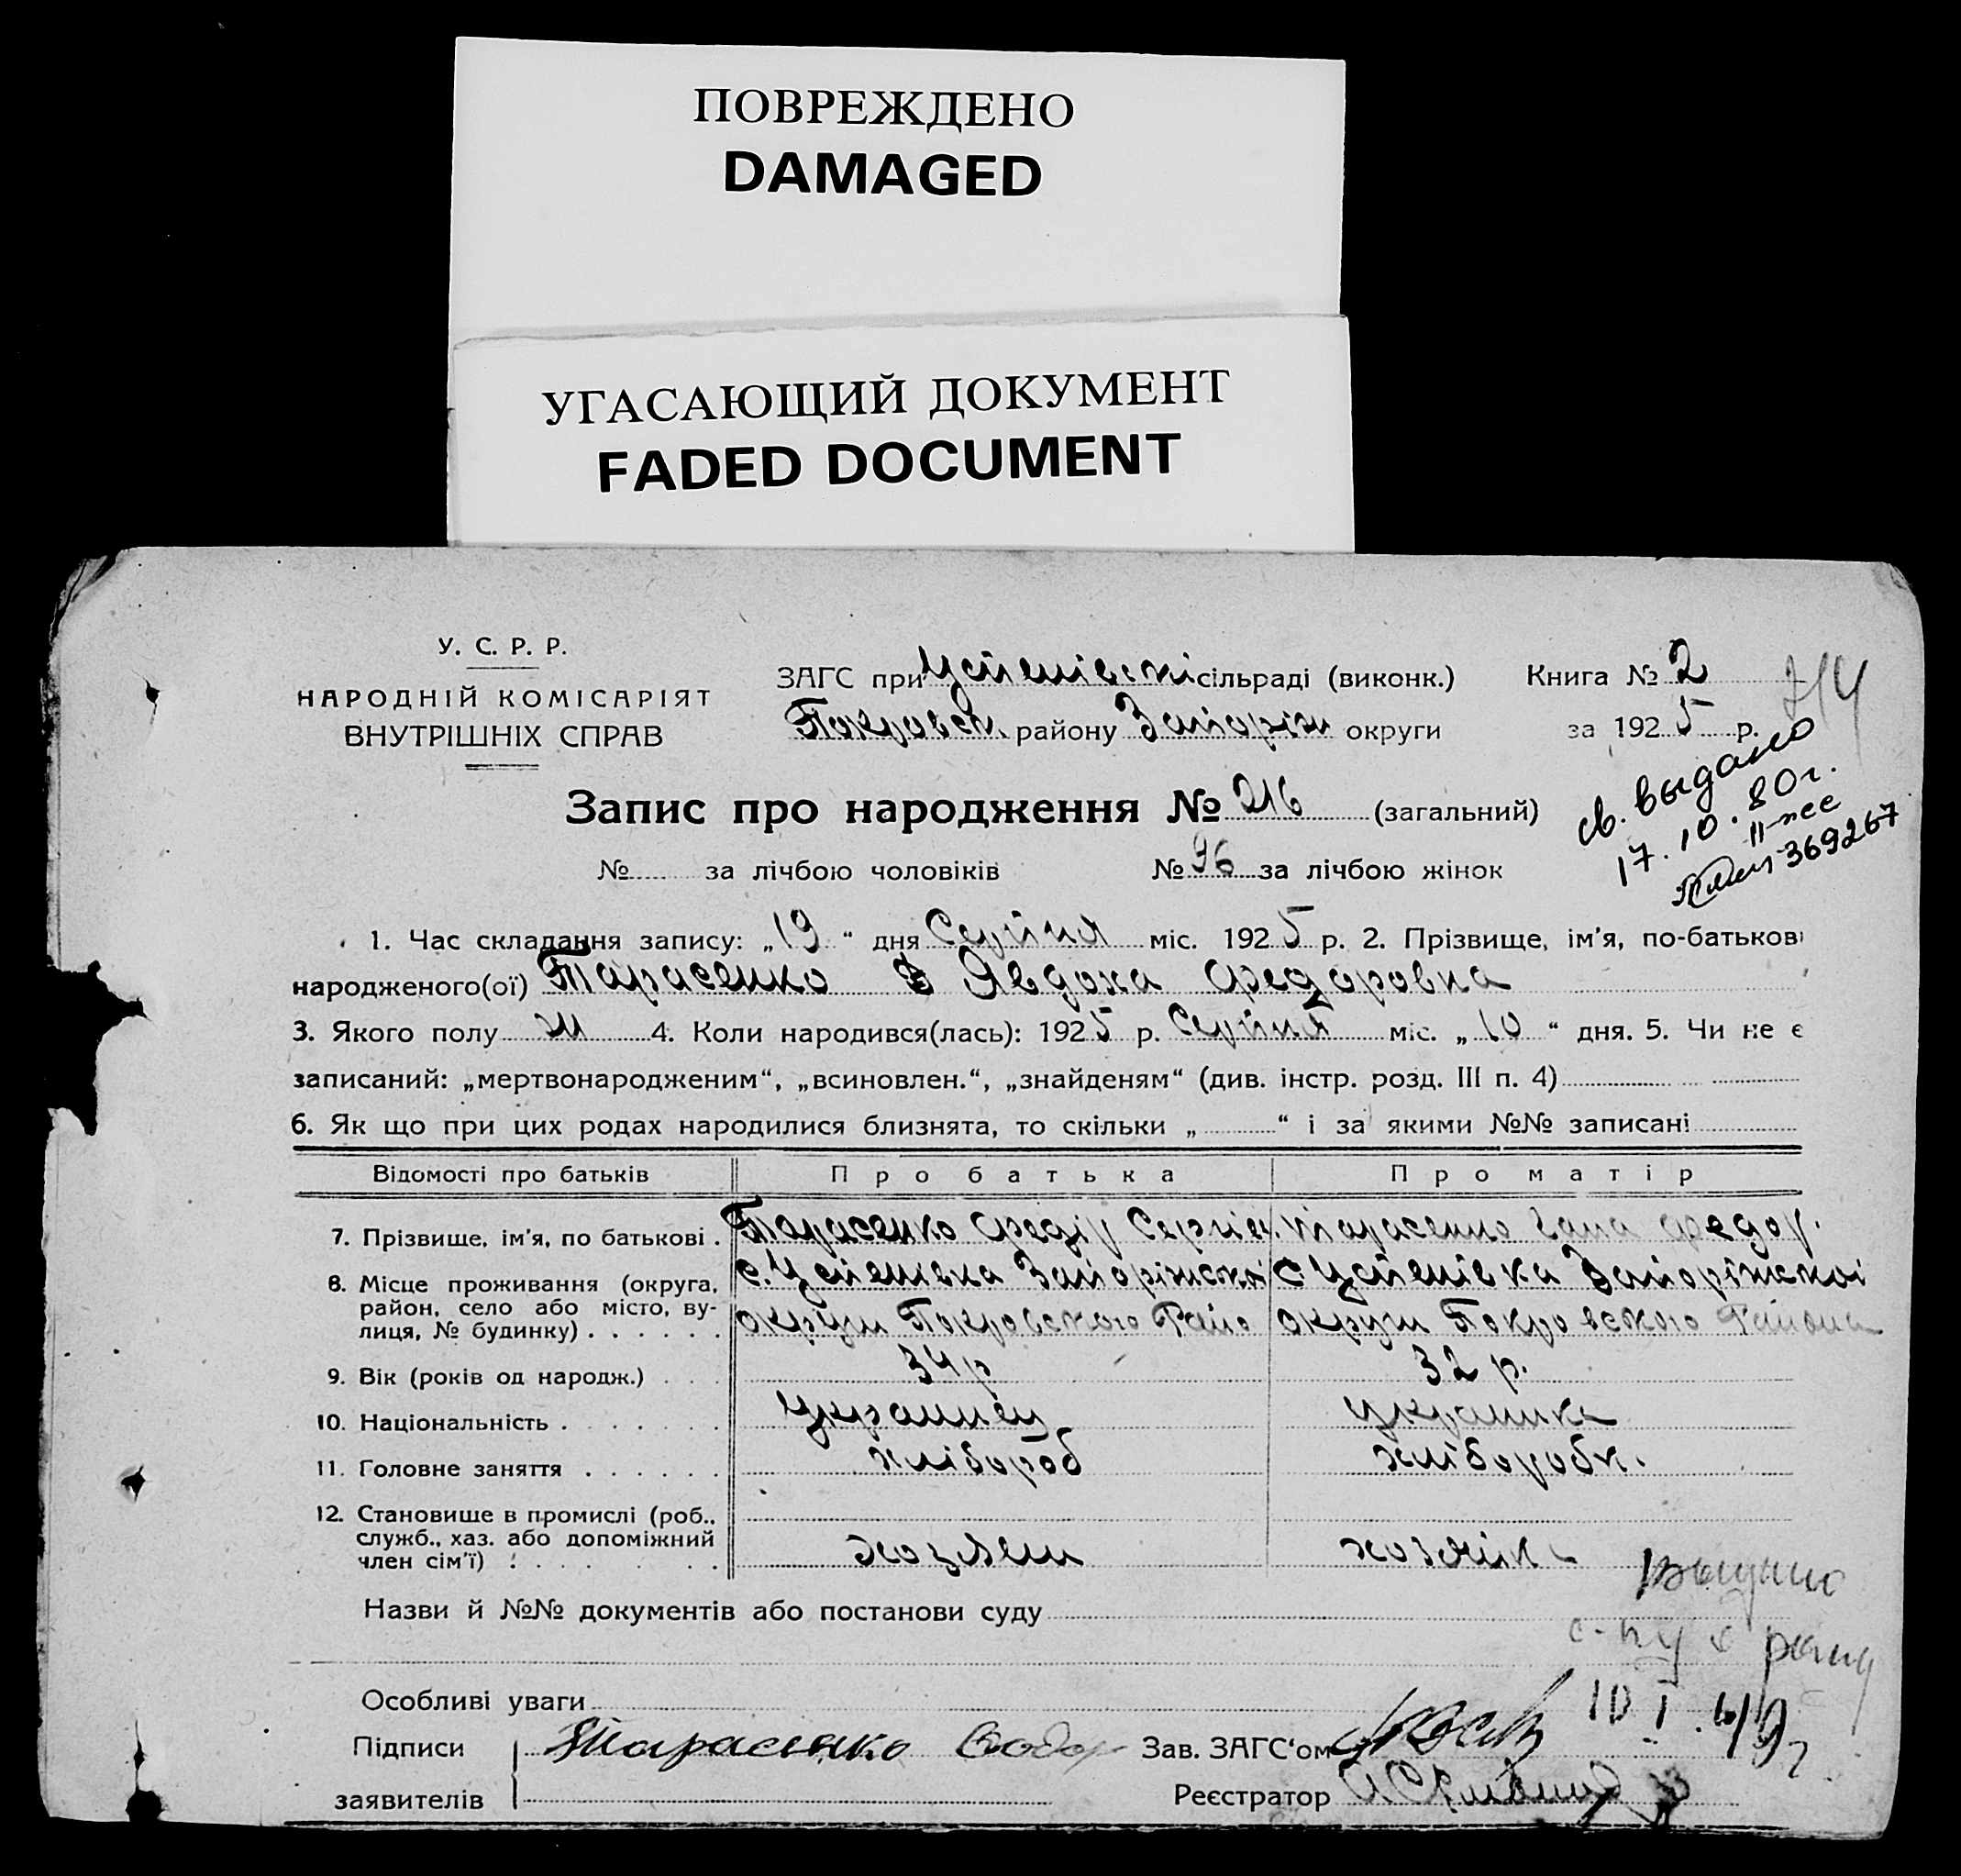 ПОВРЕЖДЕНО
DAMAGED
УГАСАЮЩИЙ ДОКУМЕНТ
FADED DOCUMENT
У. С. Р. Р.
НАРОДНІЙ КОМІСАРІЯТ
ВНУТРІШНІХ СПРАВ
ЗАГС при Успенівській сільраді (виконк.)
Покровськ району Запоріж округи
Книга № 2
за 1925 р.
714
св. выдано
17.10.80г.
II-ЖС
369267
Запис про народження № 216 (загальний)
№ за лічбою чоловіків № 96 за лічбою жінок
1. Час складання запису: „19“ дня Серпня міс. 1925 р. 2. Прізвище, ім'я, по-батькові
народженого(ої) Тарасенко Явдоха Федоровна
3. Якого полу ж 4. Коли народився(лась): 1925 р. Серпня міс. „10“ дня. 5. Чи не є
записаний: „мертвонародженим“, „всиновлен.“, „знайденям“ (див. інстр. розд. III п. 4)
6. Як що при цих родах народилися близнята, то скільки „ “ і за якими №№ записані
Відомості про батьків Про батька Про матір
7. Прізвище, ім'я, по батькові . Тарасенко Федір Сергієв. Тарасенко Гана Федор.
8. Місце проживання (округа, с. Успенівка Запоріжської с Успенівка Запоріжської
район, село або місто, ву-
лиця, № будинку) . . . . . . округи Покровського Райо округи Покровського Района
9. Вік (років од народж.) . . . 34 р 32 р.
10. Національність . . . . . . українец українка
11. Головне заняття . . . . . . хлібороб хліборобк.
12. Становище в промислі (роб.,
служб., хаз. або допоміжний
член сім'ї) . . . . . . хозяеш хозяйка
Назви й №№ документів або постанови суду
Выдано
Особливі уваги
10 I. 49г.
Підписи Тарасенко Зав. ЗАГС'ом
заявителів Реєстратор